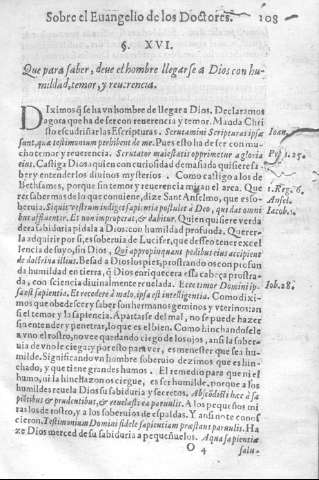 Sobre el Euangelio de los Doctores. 108
§. XVI.
Que para saber, deue el hombre llegarse a Dios con hu-
mildad, temor, y reuerencia.
DIximos q̃ se ha vn hombre de llegar a Dios. Declaramos
agora que ha de ser con reuerencia y temor. Manda Chri
sto escudriñar las Escripturas. Scrutamini Scripturas ipsæ Ioan.
sunt, quæ testimonium perhibent de me. Pues esto ha de ser con mu-
cho temor y reuerencia. Scrutator maiestatis opprimetur a gloria
eius. Castiga Dios a quien con curiosidad demasiada quisiere sa-
ber y entender los diuinos mysterios. Como castigo a los de
Bethsames, porque sin temor y reuerencia miran el area. Que 1. Reg. 6.
rer saber mas de lo que conuiene, dize Sant Anselmo, que es so- Ansel.
beruia. Siquis vestrum indiget sapientia postulet à Deo, qui dat omni Iacob. 1.
bus affluenter. Et non improperat, & dabitur. Quien quisiere verda
dera sabiduria pidala a Dios con humildad profunda. Querer-
la adquirir por si, es soberuia de Lucifer, que desseo tener excel
lencia de suyo, sin Dios. Qui appropinquant pedibus eius accipient
de doctrina illius. Besad a Dios los pies, prostrandoos con profun
da humildad en tierra, q̃ Dios enriquecera essa cabeça prostra-
da, con sciencia diuinalmente reuelada. Ecce timor Domini ip- Iob. 28.
sa est sapientia. Et recedere à malo, ipsa est intelligentia. Como dixi-
mos que obedescer y saber son hermanos geminos y vterinos: an
si el temor y la sapiencia. Apartarse del mal, no se puede hazer
sin entender y penetrar, lo que es el bien. Como hinchandosele
a vno el rostro, no vee quedando ciego de los ojos, ansi la sober
uia de vno le ciega: y por esto para ver, es menester que sea hu-
milde. Significando vn hombre soberuio dezimos que es hin-
chado, y que tiene grandes humos. El remedio para que ni el
humo, ni la hinchazon os ciegue, es ser humilde, porque a los
humildes reuela Dios su sabiduria y secretos. Abscōdisti hæc à sa
pientibus & prudentibus, & reuelasti ea paruulis. A los pequeños mi
ra los de rostro, y a los soberuios de espaldas. Y ansi no te cono
cieron. Testimonium Domini fidele sapientiam præstans paruulis. Ha
ze Dios merced de su sabiduria a pequeñuelos. Aqua sapientiæ
O 4 salu-